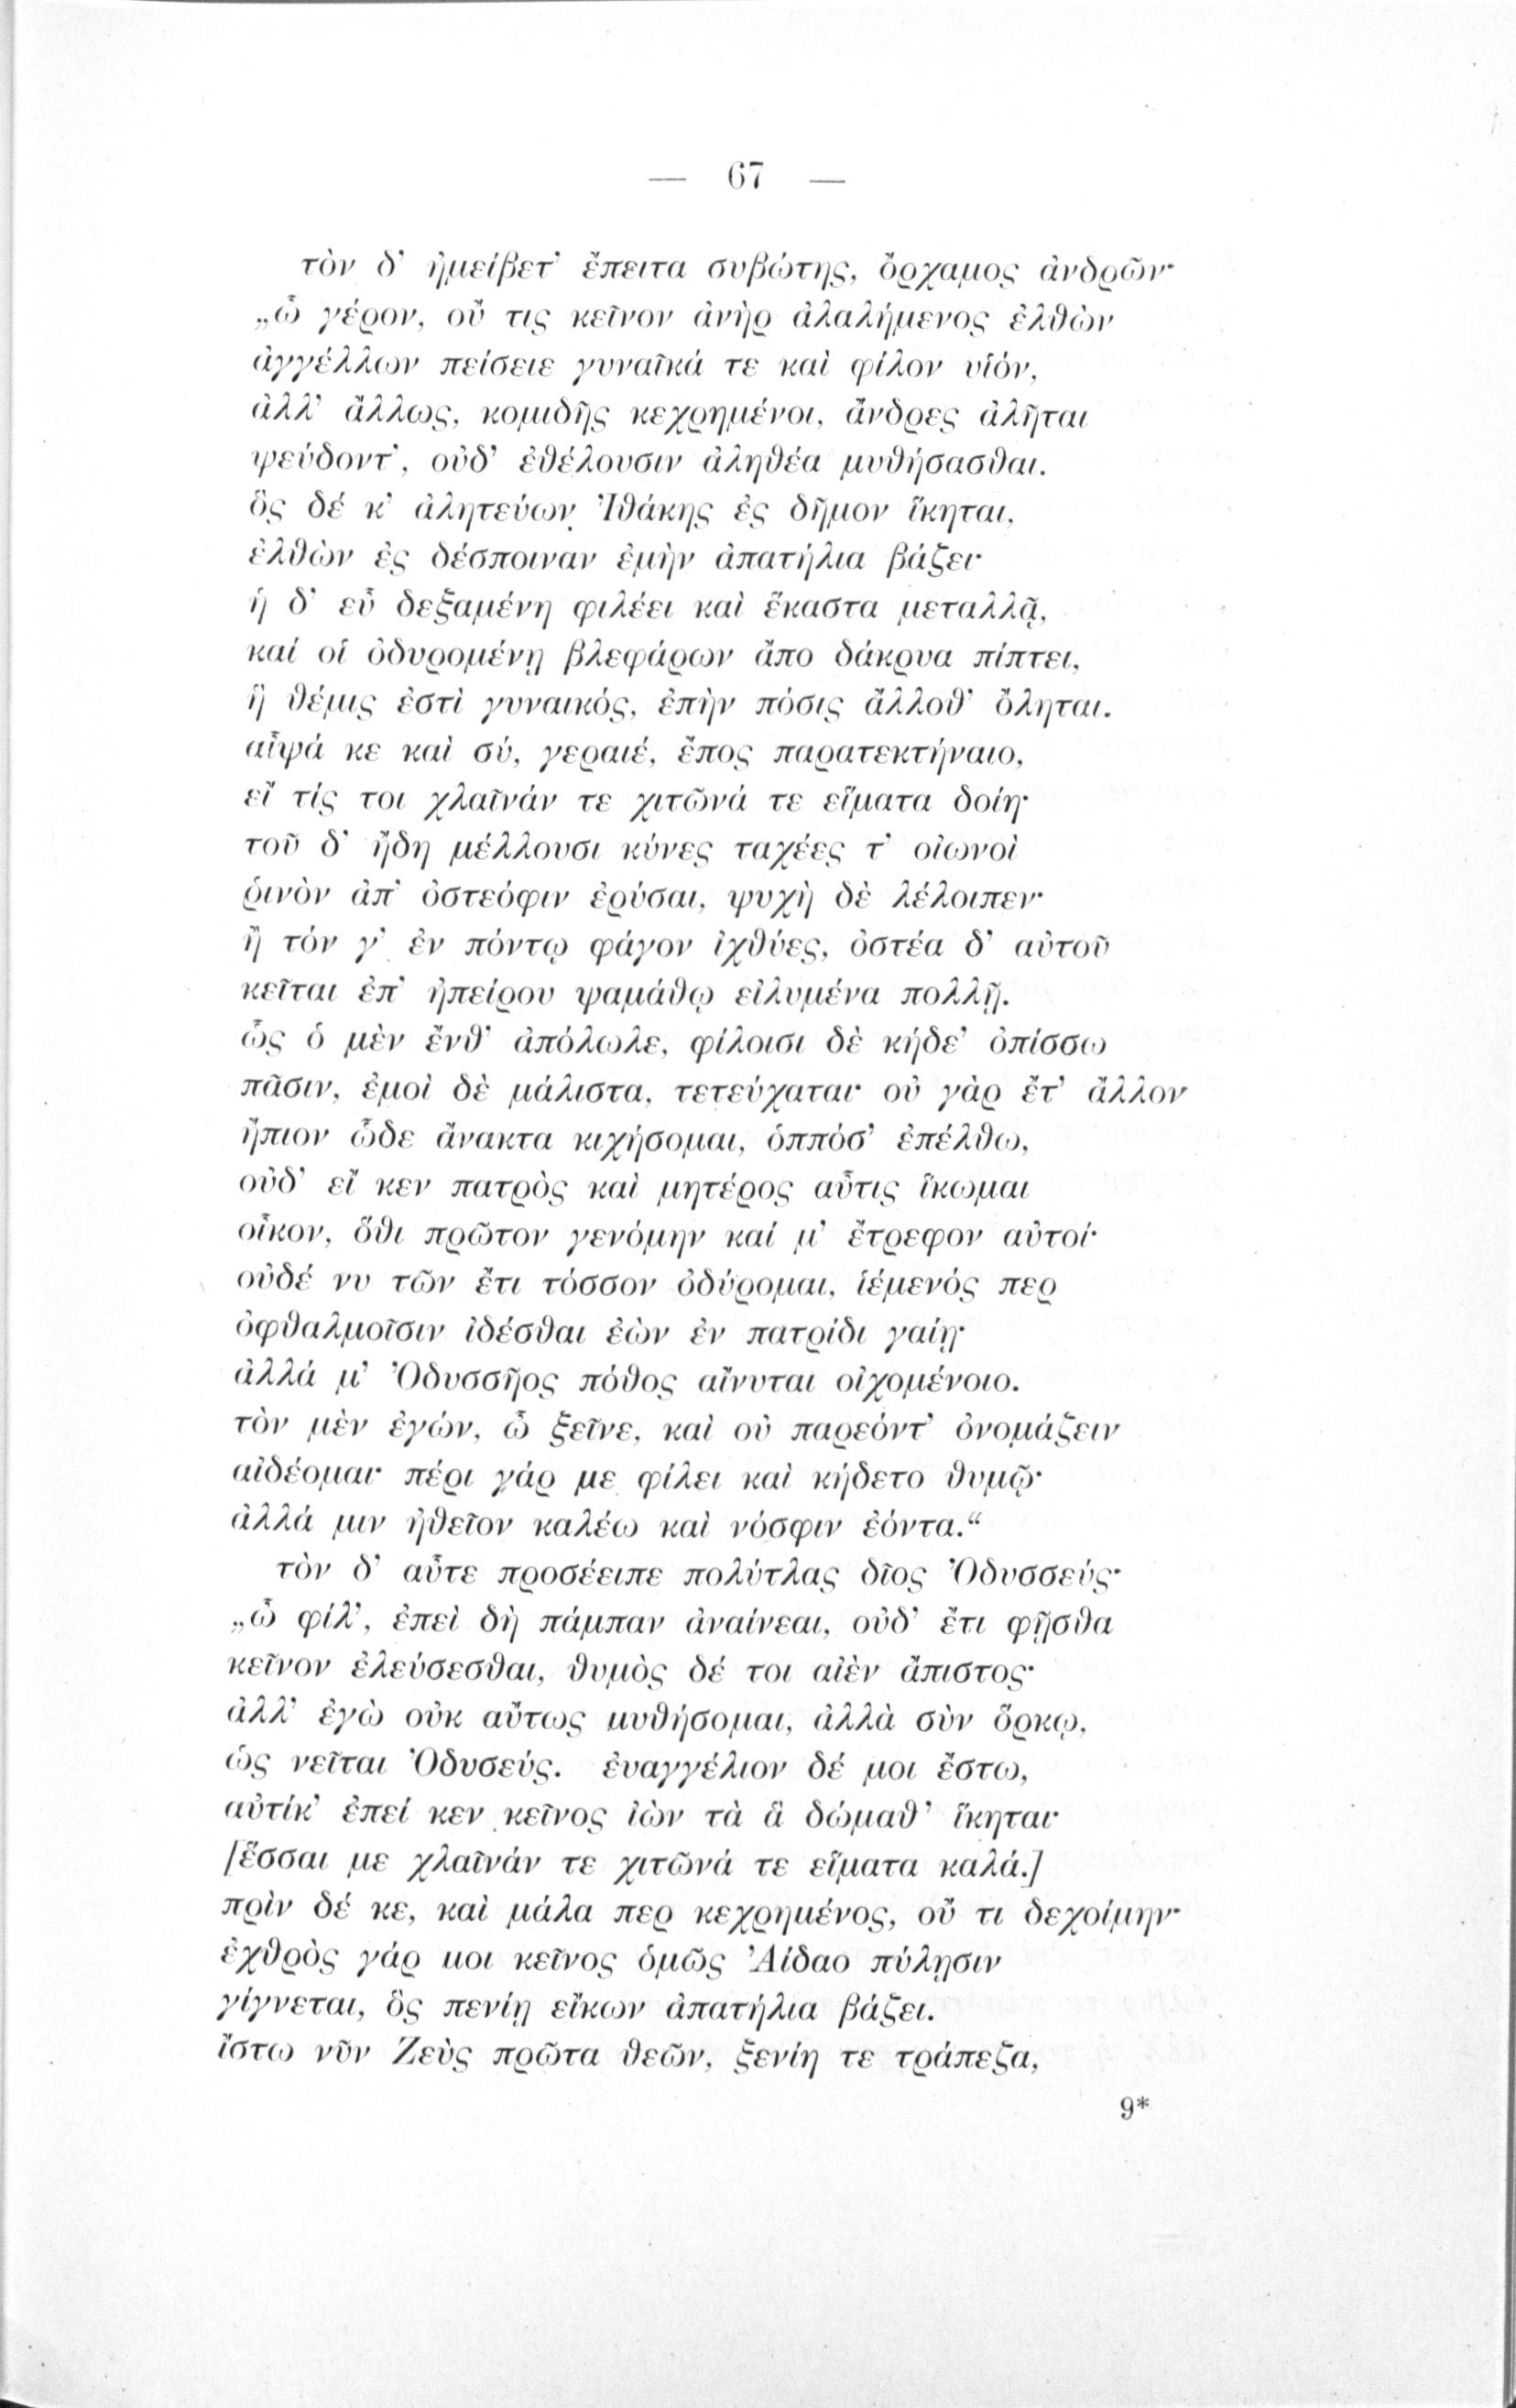 — 67 —
τὸν δ' ἠμείβετ' ἔπειτα συβώτης, ὄρχαμος ἀνδρῶν·
„ὦ γέρον, οὔ τις κεῖνον ἀνὴρ ἀλαλήμενος ἐλθὼν
ἀγγέλλων πείσειε γυναῖκά τε καὶ φίλον υἱόν,
ἀλλ' ἄλλως, κομιδῆς κεχρημένοι, ἄνδρες ἀλῆται
ψεύδοντ', οὐδ' ἐθέλουσιν ἀληθέα μυθήσασθαι.
ὃς δέ κ' ἀλητεύων Ἰθάκης ἐς δῆμον ἵκηται,
ἐλθὼν ἐς δέσποιναν ἐμὴν ἀπατήλια βάζει·
ἡ δ' εὖ δεξαμένη φιλέει καὶ ἕκαστα μεταλλᾷ,
καί οἱ ὀδυρομένῃ βλεφάρων ἄπο δάκρυα πίπτει,
ἣ θέμις ἐστὶ γυναικός, ἐπὴν πόσις ἄλλοθ' ὄληται.
αἶψά κε καὶ σύ, γεραιέ, ἔπος παρατεκτήναιο,
εἴ τίς τοι χλαῖνάν τε χιτῶνά τε εἵματα δοίη·
τοῦ δ' ἤδη μέλλουσι κύνες ταχέες τ' οἰωνοὶ
ῥινὸν ἀπ' ὀστεόφιν ἐρύσαι, ψυχὴ δὲ λέλοιπεν·
ἢ τόν γ' ἐν πόντῳ φάγον ἰχθύες, ὀστέα δ' αὐτοῦ
κεῖται ἐπ' ἠπείρου ψαμάθῳ εἰλυμένα πολλῇ.
ὣς ὁ μὲν ἔνθ' ἀπόλωλε, φίλοισι δὲ κήδε' ὀπίσσω
πᾶσιν, ἐμοὶ δὲ μάλιστα, τετεύχαται· οὐ γὰρ ἔτ' ἄλλον
ἤπιον ὧδε ἄνακτα κιχήσομαι, ὁππόσ' ἐπέλθω,
οὐδ' εἴ κεν πατρὸς καὶ μητέρος αὖτις ἵκωμαι
οἶκον, ὅθι πρῶτον γενόμην καί μ' ἔτρεφον αὐτοί·
οὐδέ νυ τῶν ἔτι τόσσον ὀδύρομαι, ἱέμενός περ
ὀφθαλμοῖσιν ἰδέσθαι ἐὼν ἐν πατρίδι γαίῃ·
ἀλλά μ' Ὀδυσσῆος πόθος αἴνυται οἰχομένοιο.
τὸν μὲν ἐγών, ὦ ξεῖνε, καὶ οὐ παρεόντ' ὀνομάζειν
αἰδέομαι· πέρι γάρ με φίλει καὶ κήδετο θυμῷ·
ἀλλά μιν ἠθεῖον καλέω καὶ νόσφιν ἐόντα.“
τὸν δ' αὖτε προσέειπε πολύτλας δῖος Ὀδυσσεύς·
„ὦ φίλ', ἐπεὶ δὴ πάμπαν ἀναίνεαι, οὐδ' ἔτι φῇσθα
κεῖνον ἐλεύσεσθαι, θυμὸς δέ τοι αἰὲν ἄπιστος·
ἀλλ' ἐγὼ οὐκ αὔτως μυθήσομαι, ἀλλὰ σὺν ὅρκῳ,
ὡς νεῖται Ὀδυσεύς. ἐυαγγέλιον δέ μοι ἔστω,
αὐτίκ' ἐπεί κεν κεῖνος ἰὼν τὰ ἃ δώμαθ' ἵκηται·
[ἕσσαι με χλαῖνάν τε χιτῶνά τε εἵματα καλά.]
πρὶν δέ κε, καὶ μάλα περ κεχρημένος, οὔ τι δεχοίμην·
ἐχθρὸς γάρ μοι κεῖνος ὁμῶς Ἀίδαο πύλῃσιν
γίγνεται, ὃς πενίῃ εἴκων ἀπατήλια βάζει.
ἴστω νῦν Ζεὺς πρῶτα θεῶν, ξενίη τε τράπεζα,
9*